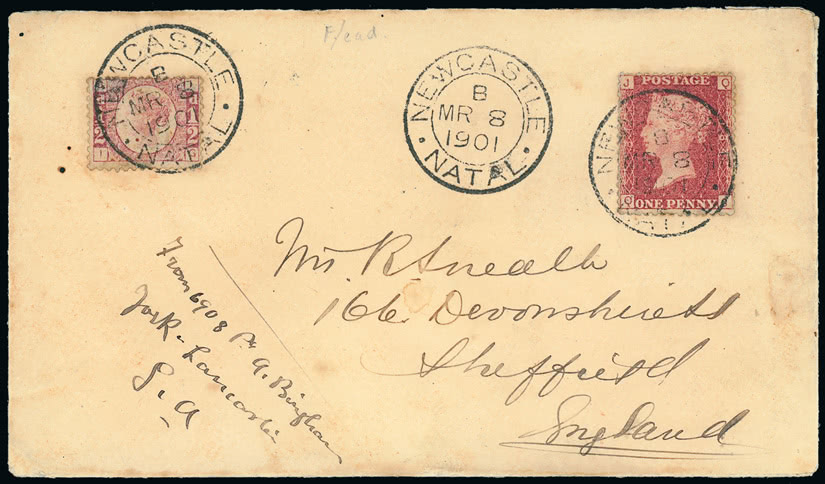 F/ead.
NEWCASTLE
B
MR 8
1901
NATAL
NEWCASTLE
B
MR 8
1901
NATAL
J POSTAGE Q
Q ONE PENNY J
B
8
Mr.
166 Devonshire St
Sheffield
England
From 6908 Pte A. Bingham
York & Lancaster
S. A